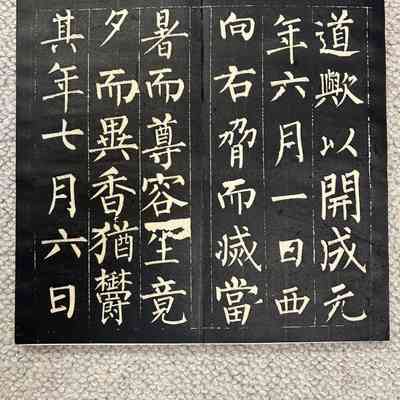 道歟以開成元
年六月一日西
向右脅而滅當
暑而尊容生竟
夕而異香猶鬱
其年七月六日